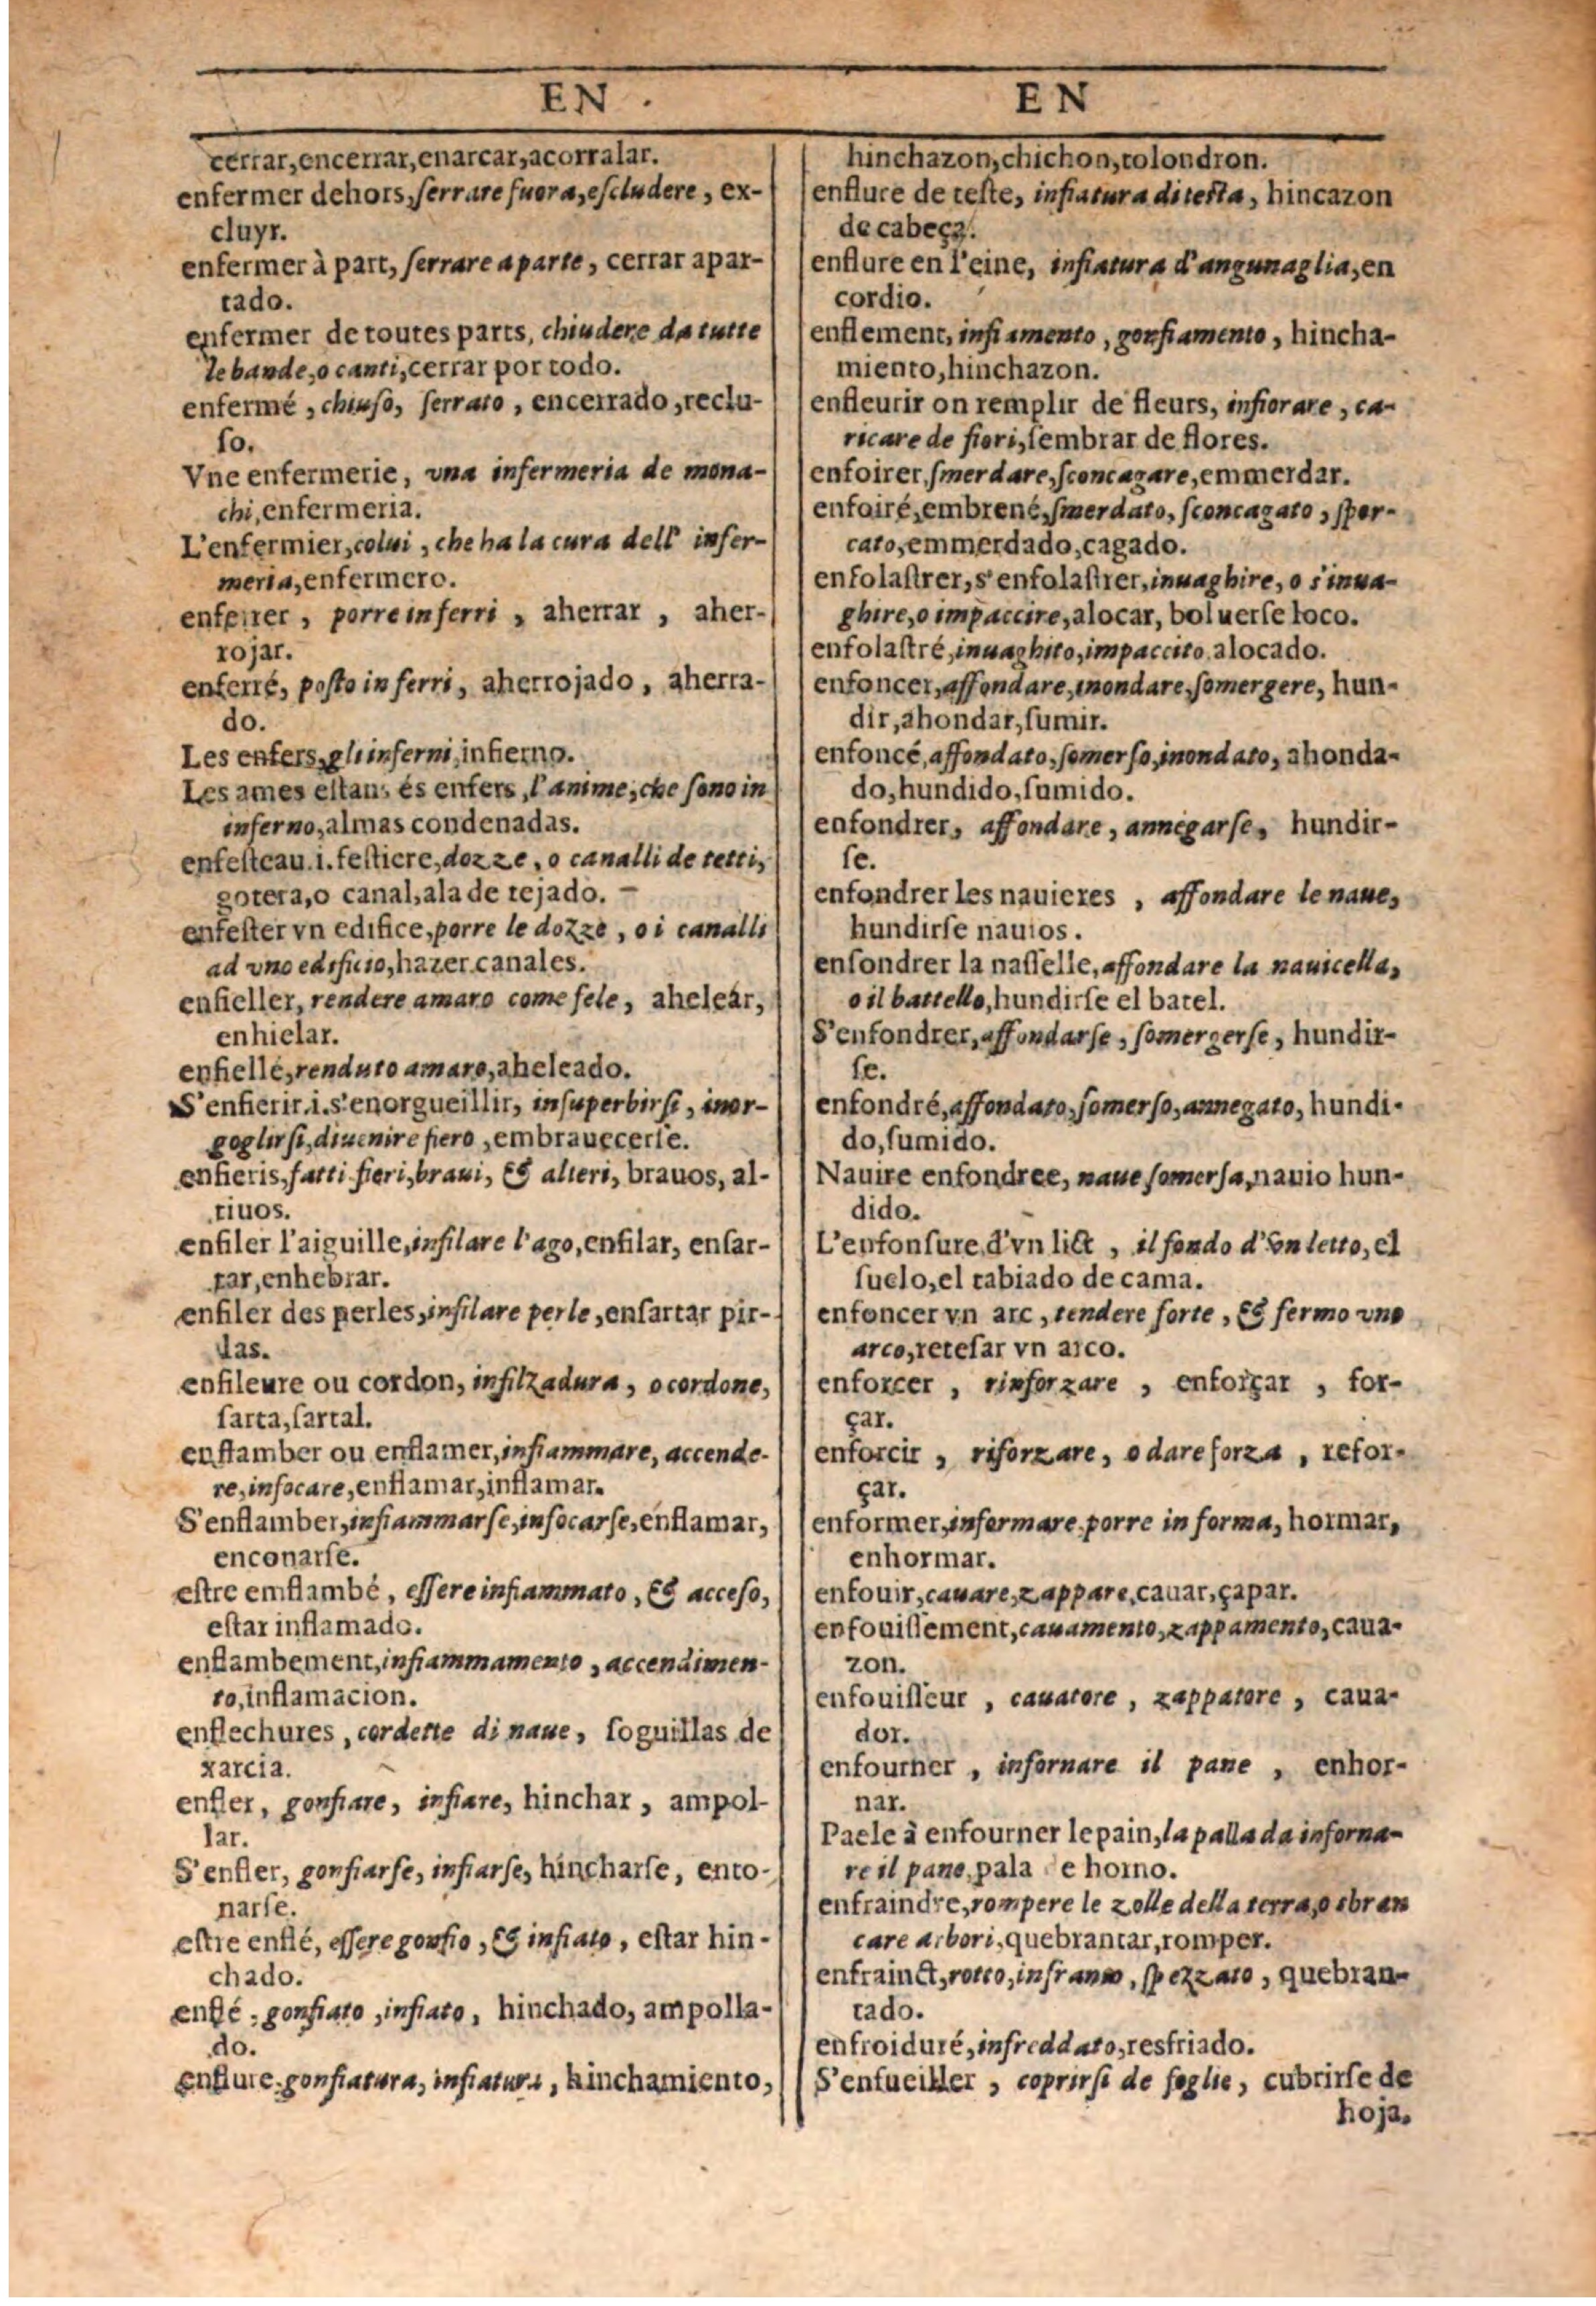 EN .
cerrar,encerrar,enarcar,acorralar.
enfermer dehors,ſerrare fuora,eſcludere, ex-
cluyr.
enfermer à part, ſerrare a parte, cerrar apar-
tado.
enfermer de toutes parts, chiudere da tutte
le bande,o canti,cerrar por todo.
enfermé, chiuſo, ſerrato, encerrado,reclu-
ſo.
Vne enfermerie, vna infermeria de mona-
chi,enfermeria.
L'enfermier,colui, che ha la cura dell' infer-
meria,enfermero.
enferrer, porre in ferri, aherrar, aher-
rojar.
enferré, poſto in ferri, aherrojado, aherra-
do.
Les enfers,gli inferni,infierno.
Les ames eſtans és enfers,l'anime,che ſono in
inferno,almas condenadas.
enfeſteau.i.feſtiere,dozze, o canalli de tetti,
gotera,o canal,ala de tejado.
enfeſter vn edifice,porre le dozze, o i canalli
ad vno edificio,hazer canales.
enfieller, rendere amaro come fele, ahelear,
enhielar.
enfiellé,renduto amaro,aheleado.
S'enfierir.i.s'enorgueillir, inſuperbirſi, inor-
goglirſi,diuenire fiero,embrauecerſe.
enfieris,fatti fieri,braui, & alteri, brauos, al-
tiuos.
enfiler l'aiguille,infilare l'ago,enfilar, enſar-
tar,enhebrar.
enfiler des perles,infilare perle,enſartar pir-
las.
enfileure ou cordon, infilzadura, o cordone,
ſarta,ſartal.
enflamber ou enflamer,infiammare, accende-
re,infocare,enflamar,inflamar.
S'enflamber,infiammarſe,infocarſe,enflamar,
enconarſe.
eſtre emflambé, eſſere infiammato, & acceſo,
eſtar inflamado.
enflambement,infiammamento, accendimen-
to,inflamacion.
enflechures, cordette di naue, ſoguillas de
xarcia.
enfler, gonfiare, infiare, hinchar, ampol-
lar.
S'enfler, gonfiarſe, infiarſe, hincharſe, ento-
narſe.
eſtre enflé, eſſere gonfio, & infiato, eſtar hin-
chado.
enflé, gonfiato,infiato, hinchado, ampolla-
do.
enflure,gonfiatura, infiatura, hinchamiento,
EN
hinchazon,chichon,tolondron.
enflure de teſte, infiatura di teſta, hincazon
de cabeça.
enflure en l'eine, infiatura d'angunaglia,en
cordio.
enflement, infiamento, gonfiamento, hincha-
miento,hinchazon.
enfleurir on remplir de fleurs, infiorare, ca-
ricare de fiori,ſembrar de flores.
enfoirer,ſmerdare,ſconcagare,emmerdar.
enfoiré,embrené,ſmerdato, ſconcagato, ſpor-
cato,emmerdado,cagado.
enfolaſtrer,s'enfolaſtrer,inuaghire, o s'inua-
ghire,o impaccire,alocar, boluerſe loco.
enfolaſtré,inuaghito,impaccito,alocado.
enfoncer,affondare,inondare,ſomergere, hun-
dir,ahondar,ſumir.
enfoncé,affondato,ſomerſo,inondato, ahonda-
do,hundido,ſumido.
enfondrer, affondare, annegarſe, hundir-
ſe.
enfondrer les nauieres, affondare le naue,
hundirſe nauios.
enfondrer la naſſelle,affondare la nauicella,
o il battello,hundirſe el batel.
S'enfondrer,affondarſe, ſomergerſe, hundir-
ſe.
enfondré,affondato,ſomerſo,annegato, hundi-
do,ſumido.
Nauire enfondree, naue ſomerſa,nauio hun-
dido.
L'enfonſure d'vn lict, il fondo d'vn letto, el
ſuelo,el tabiado de cama.
enfoncer vn arc, tendere forte, & fermo vno
arco,reteſar vn arco.
enforcer, rinforzare, enforçar, for-
çar.
enforcir, riforzare, o dare forza, refor-
çar.
enformer,informare,porre in forma, hormar,
enhormar.
enfouir,cauare,zappare,cauar,çapar.
enfouiſſement,cauamento,zappamento,caua-
zon.
enfouiſſeur, cauatore, zappatore, caua-
dor.
enfourner, infornare il pane, enhor-
nar.
Paele à enfourner le pain,la palla da inforna-
re il pane,pala de horno.
enfraindre,rompere le zolle della terra,o sbran
care arbori,quebrantar,romper.
enfrainct,rotto,infranto, ſpezzato, quebran-
tado.
enfroiduré,infreddato,resfriado.
S'enfueiller, coprirſi de foglie, cubrirſe de
hoja.